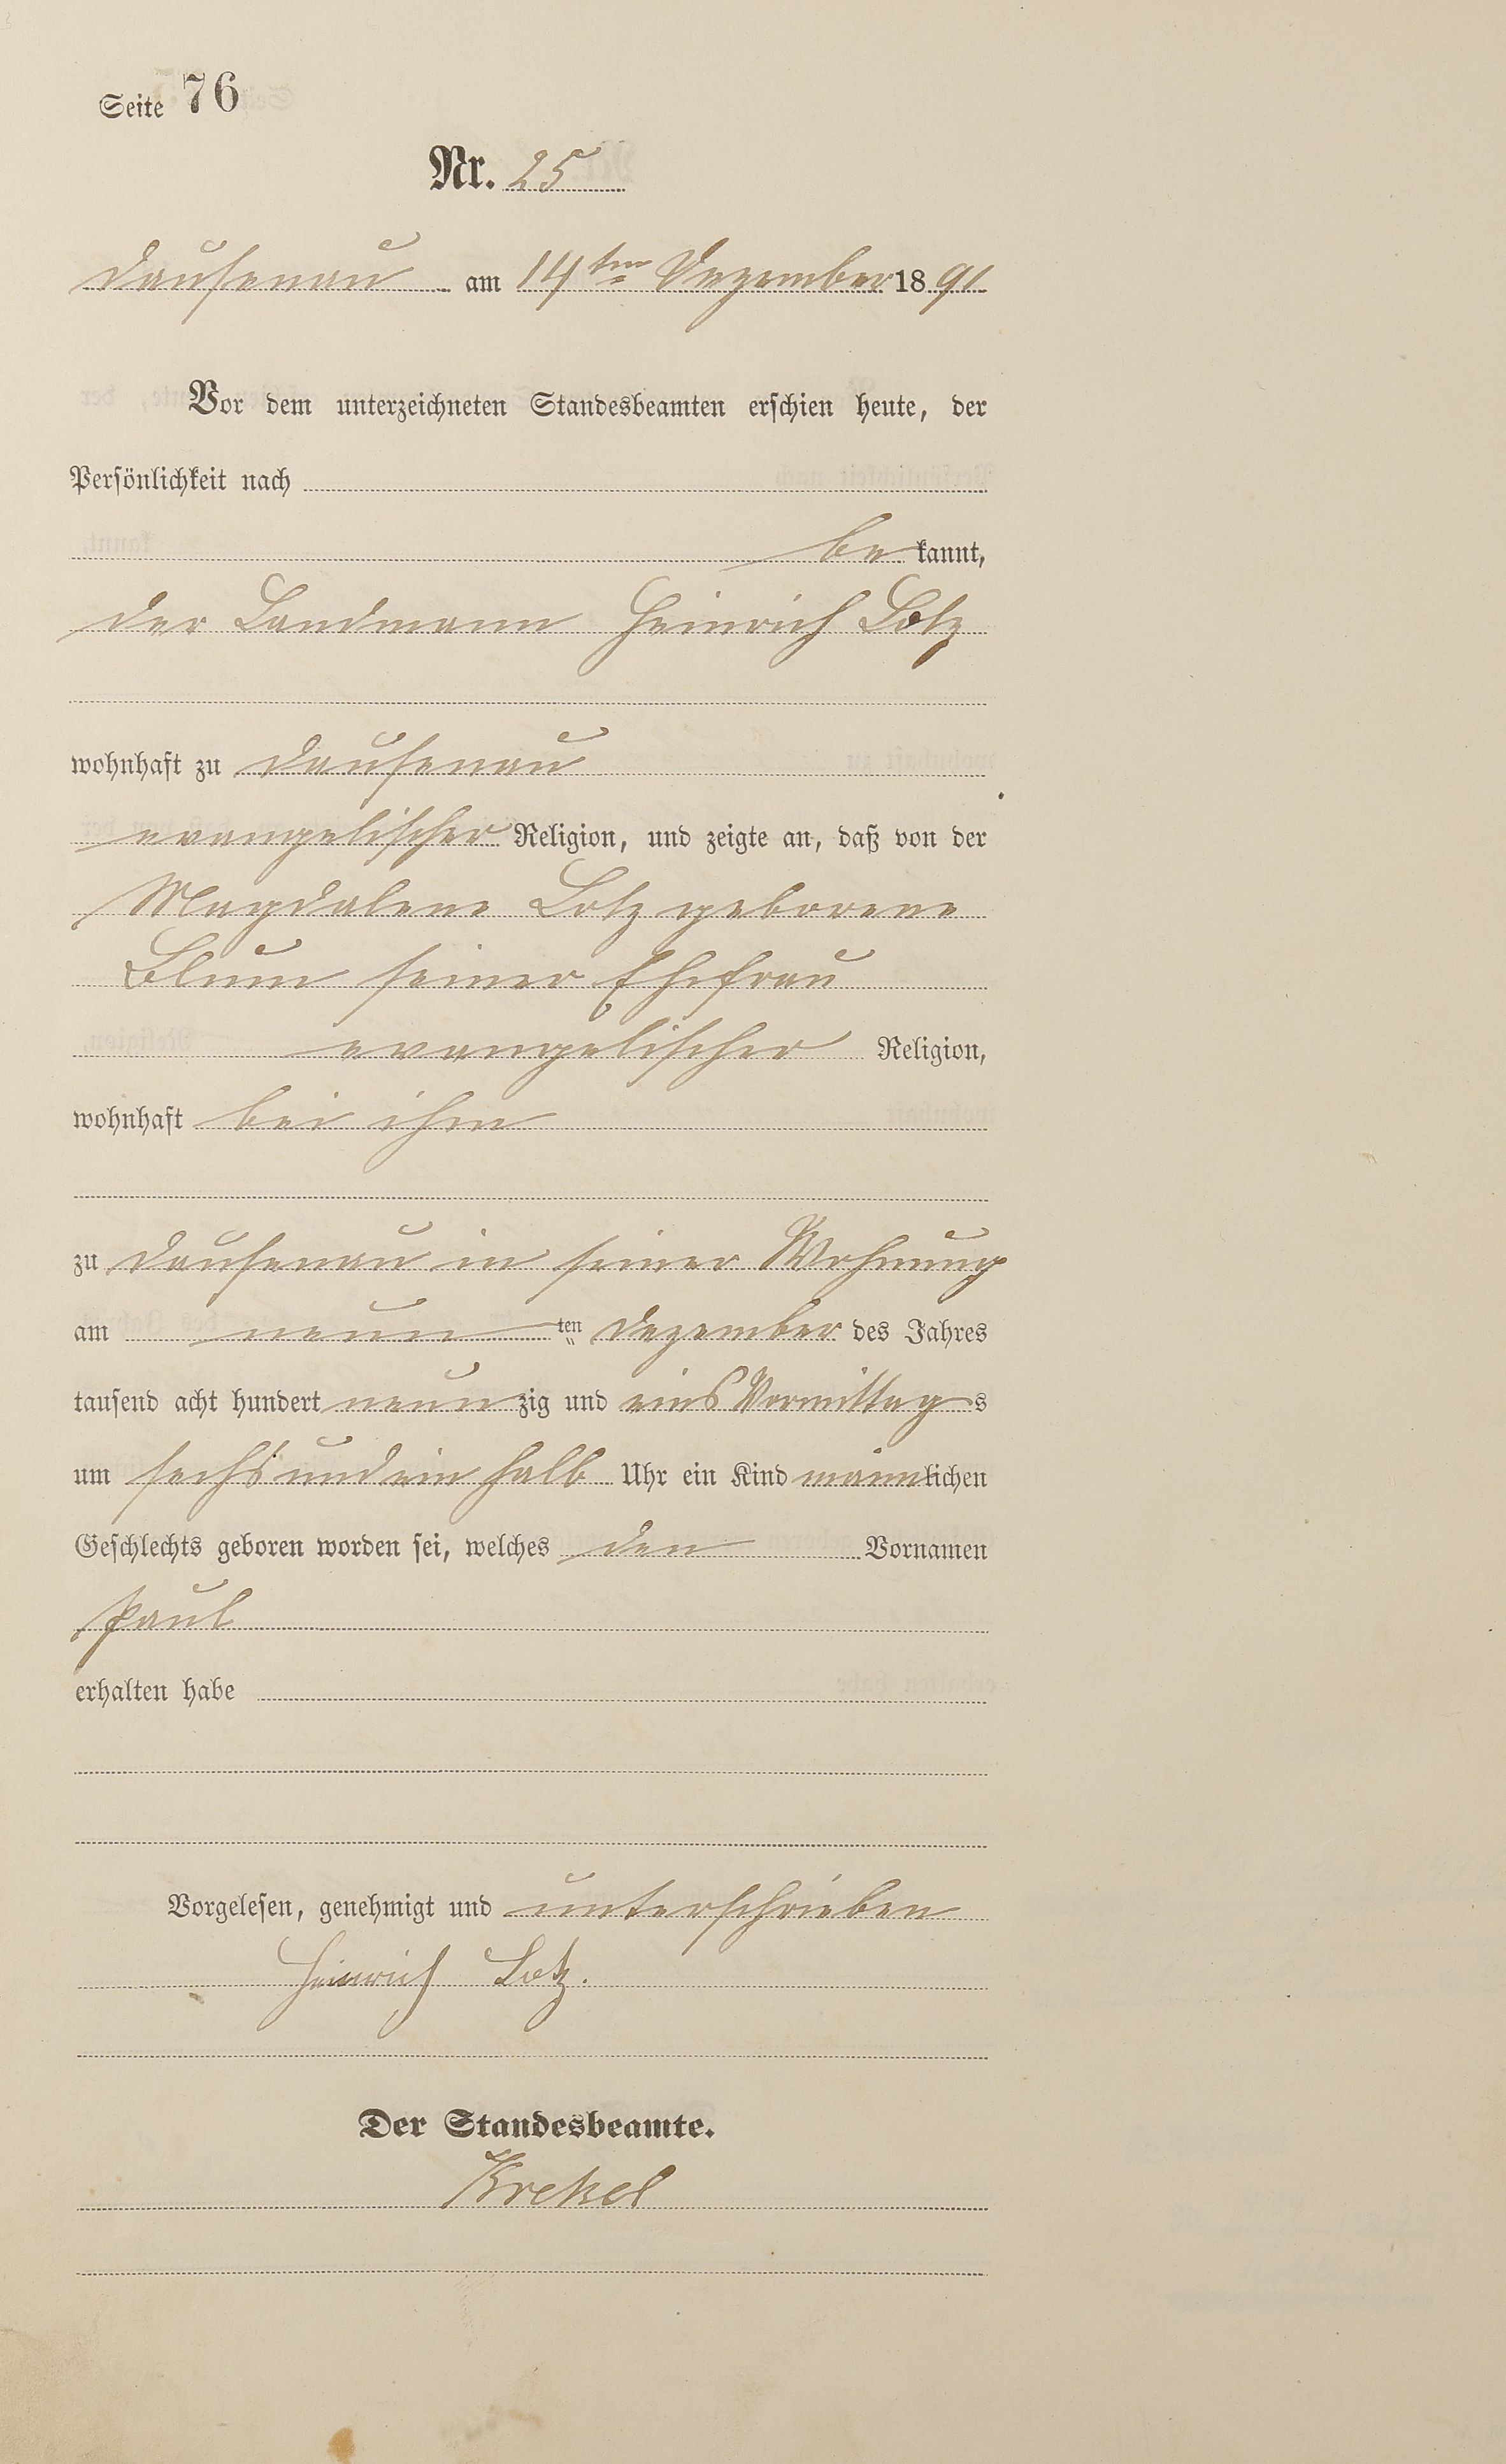 Seite 76
Nr. 25
Dausenau am 14ten Dezember 1891
Vor dem unterzeichneten Standesbeamten erschien heute, der
Persönlichkeit nach
bekannt,
der Landmann Heinrich Lotz
wohnhaft zu Dausenau
evangelischer Religion, und zeigte an, daß von der
Magdalene Lotz geborene
Blum seiner Ehefrau
evangelischer Religion,
wohnhaft bei ihm
zu Dausenau in seiner Wohnung
am neunten Dezember des Jahres
tausend acht hundert neunzig und eins Vormittags
um sechs und ein halb Uhr ein Kind männlichen
Geschlechts geboren worden sei, welches den Vornamen
Paul
erhalten habe
Vorgelesen, genehmigt und unterschrieben
Heinrich Lotz.
Der Standesbeamte.
Krekel